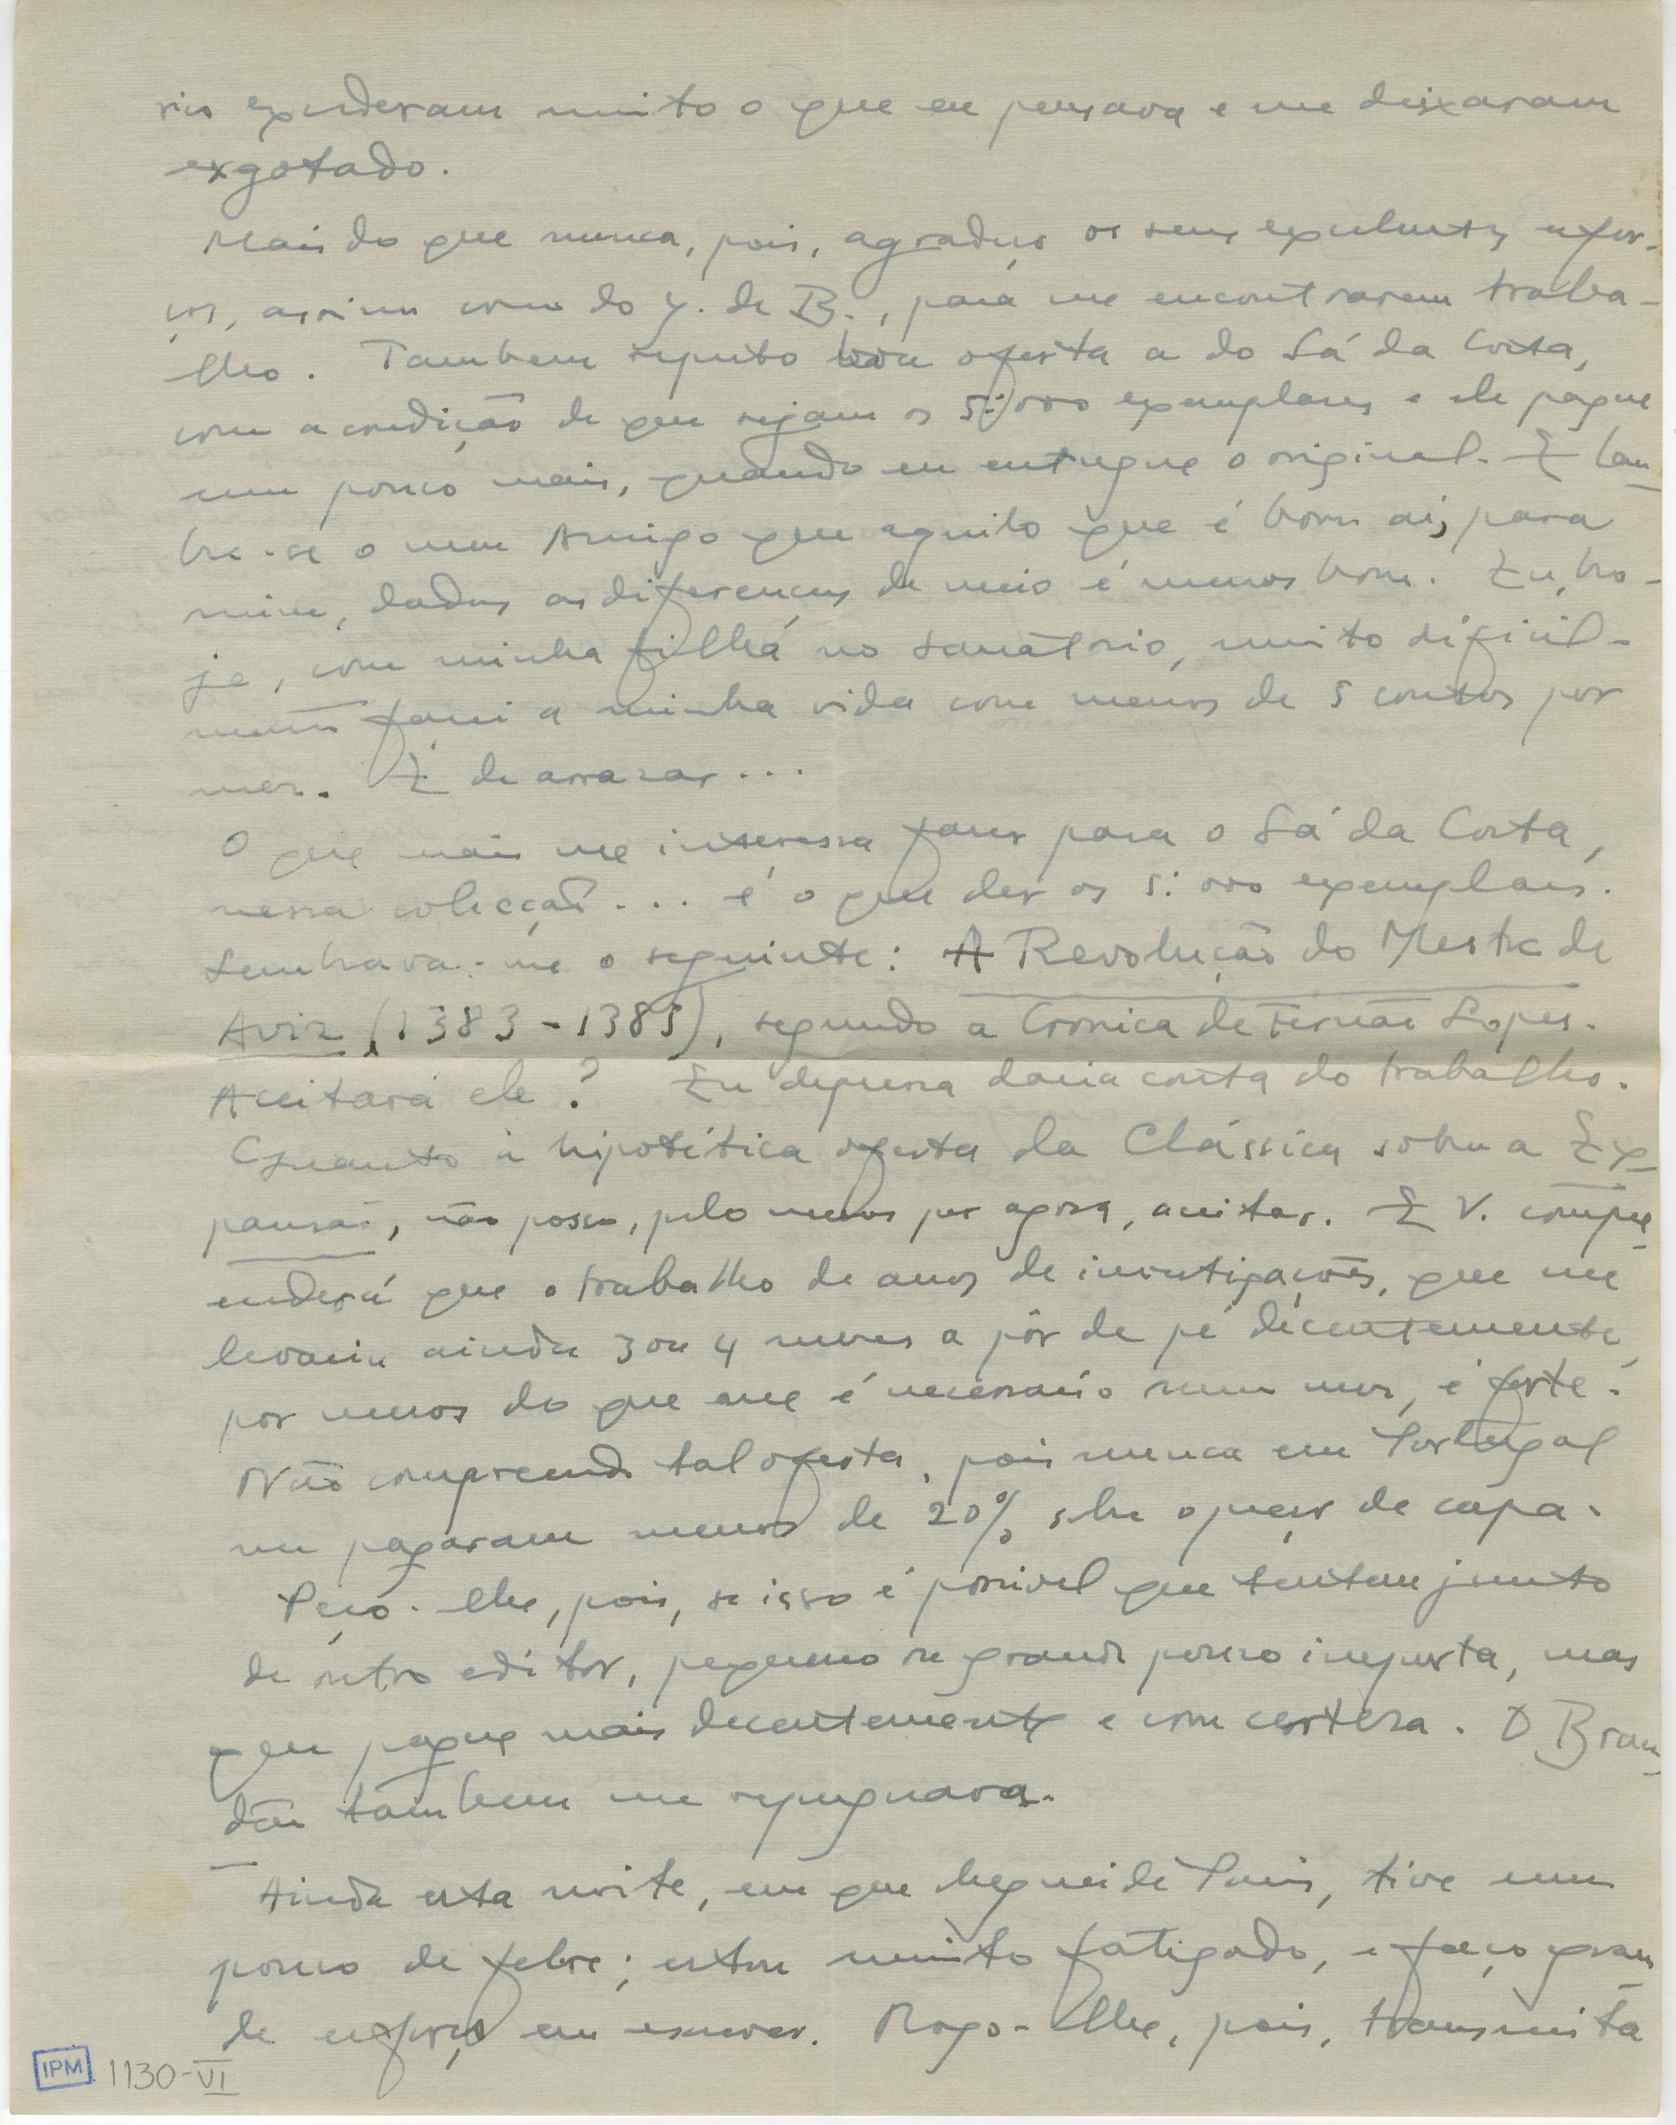 rios excederam muito o que eu pensava e me deixaram
exgotado.
Mais do que nunca, pois, agradeço os seus excelentes esfor-
ços, assim como do Y. de B., para me encontrarem traba-
lho. Tambem reputo boa oferta a do Sá da Costa,
com a condição de que sejam os 5:000 exemplares e ele pague
um pouco mais, quando eu entregue o original. E lem-
bre-se o meu Amigo que aquilo que é bom aí, para
mim, dadas as diferenças de meio é menos bom. Eu, ho-
je, com minha filha no sanatório, muito dificil-
mente farei a minha vida com menos de 5 contos por
mez. É de arrazar...
O que mais me interessa fazer para o Sá da Costa,
nessa colecção... é o que der os 5:000 exemplares.
Lembrava-me o seguinte: A Revolução do Mestre de
Aviz (1383-1385), segundo a Cronica de Fernão Lopes.
Aceitará ele? Eu depressa daria conta do trabalho.
Quanto à hipotética oferta da Clássica sobre a Ex-
pansão, não posso, pelo menos por agora, aceitar. E V. compre-
enderá que o trabalho de anos de investigações, que me
levaria ainda 3 ou 4 mezes a pôr de pé decentemente,
por menos do que me é necessario num mez, é forte.
Não compreendo tal oferta, pois nunca em Portugal
me pagaram menos de 20% sobre o preço de capa.
Peço-lhe, pois, se isso é possivel que tentem junto
de outro editor, pequeno ou grande pouco importa, mas
que pague mais decentemente e com certeza. O Bran-
dão tambem me repugnava.
Ainda esta noite, em que cheguei de Paris, tive um
pouco de febre; estou muito fatigado, e faço gran-
de esforço em escrever. Rogo-lhe, pois, transmita
IPM 1130-VI